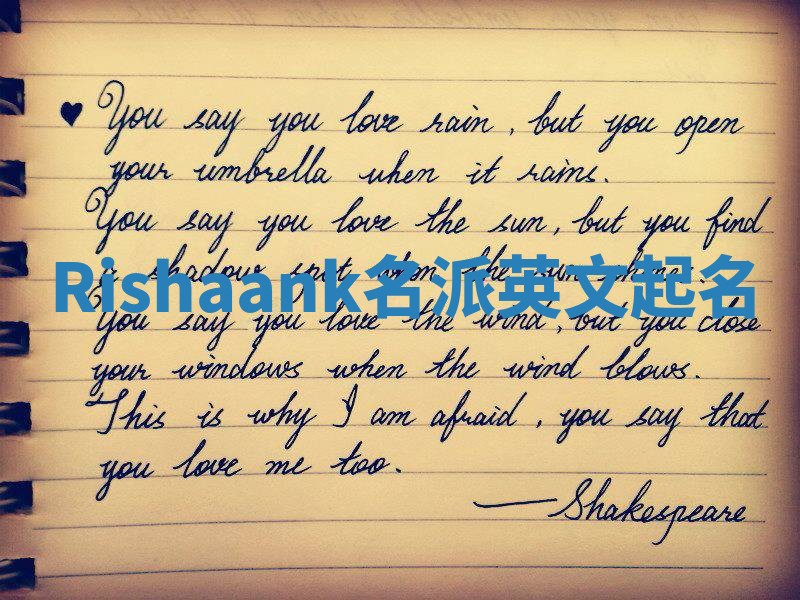 ♥ You say you love rain, but you open
your umbrella when it rains.
You say you love the sun, but you find
a shadow spot when the sun shines.
Rishaank名派英文起名
You say you love the wind, but you close
your windows when the wind blows.
This is why I am afraid, you say that
you love me too.
—Shakespeare